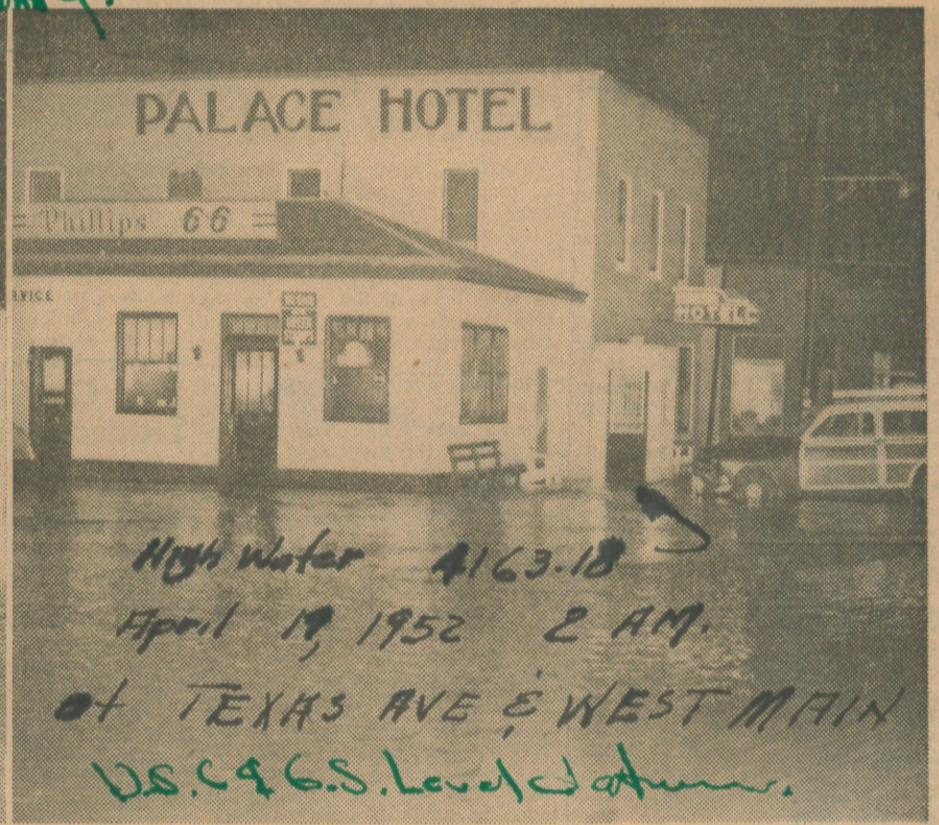 PALACE HOTEL
Phillips 66
RVICE
HOTEL
High Water 4163.18
April 19, 1952 2 AM.
at TEXAS AVE & WEST MAIN
U.S.C & G.S. Level datum.